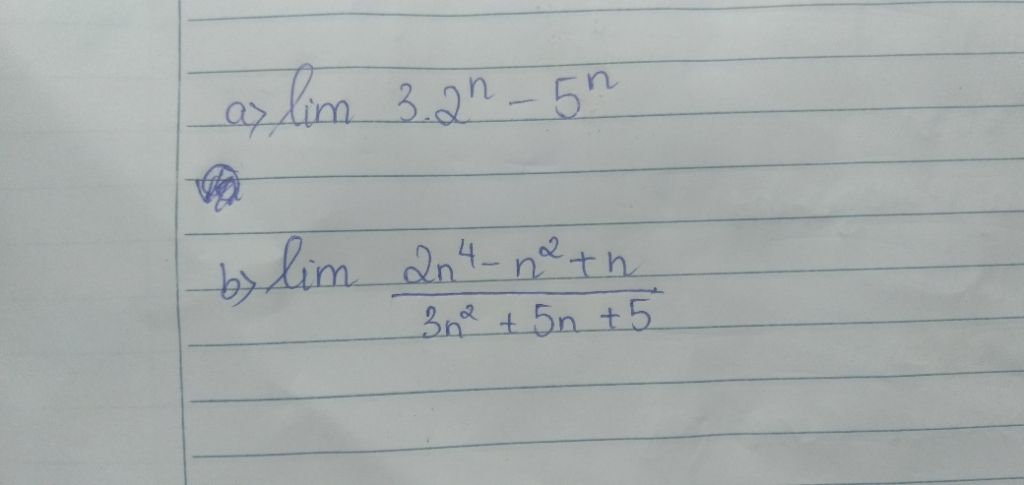 a> lim 3.2ⁿ - 5ⁿ
b> lim (2n⁴ - n² + n)/(3n² + 5n + 5)